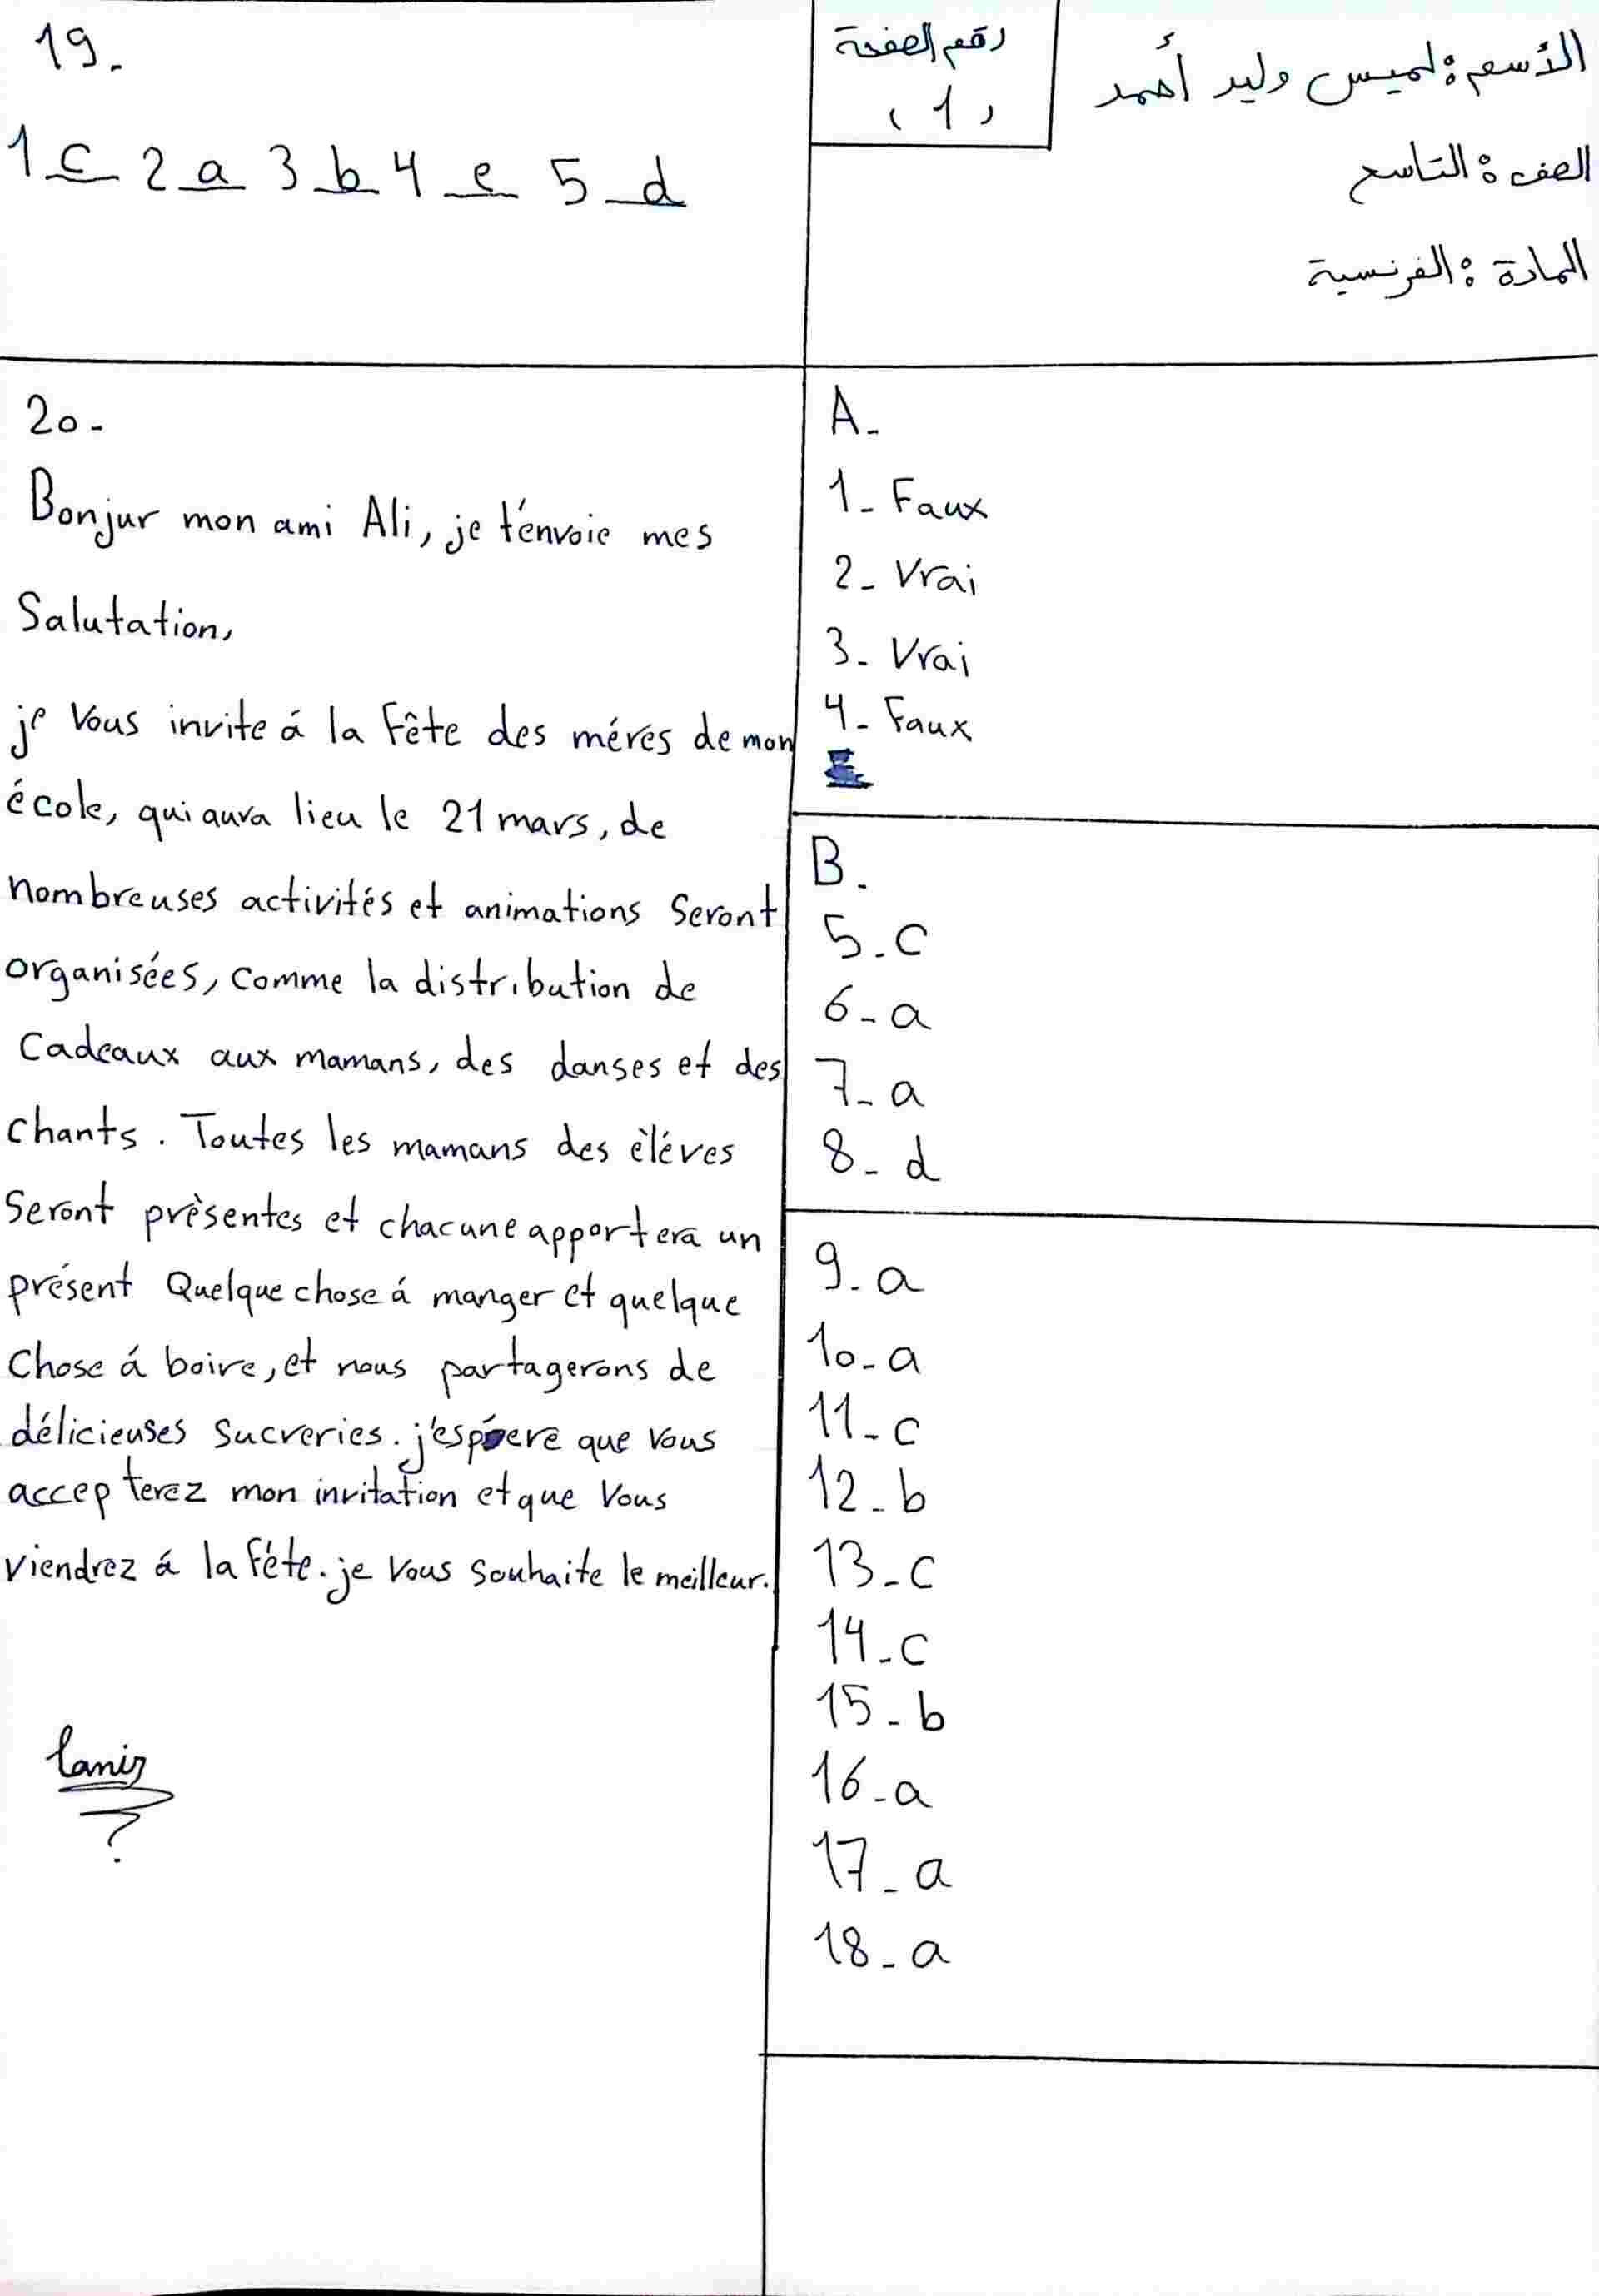 الأسم : لميس وليد أحمد
الصف : التاسع
المادة : الفرنسية
رقم الصفحة
(1)
A-
1- Faux
2- Vrai
3- Vrai
4- Faux
B.
5-c
6-a
7-a
8-d
9-a
10-a
11-c
12-b
13-c
14-c
15-b
16-a
17-a
18-a
19-
1 c 2 a 3 b 4 e 5 d
20-
Bonjur mon ami Ali, je t'envoie mes
Salutation,
je Vous invite á la Fête des méres de mon
école, qui aura lieu le 21 mars, de
nombreuses activités et animations Seront
organisées, comme la distribution de
Cadeaux aux mamans, des danses et des
chants. Toutes les mamans des èléves
Seront prèsentes et chacune apportera un
présent Quelque chose á manger et quelque
Chose á boire, et nous partagerons de
délicieuses Sucreries. j'espére que Vous
accepterez mon invitation et que Vous
viendrez á la féte. je Vous Souhaite le meilleur.